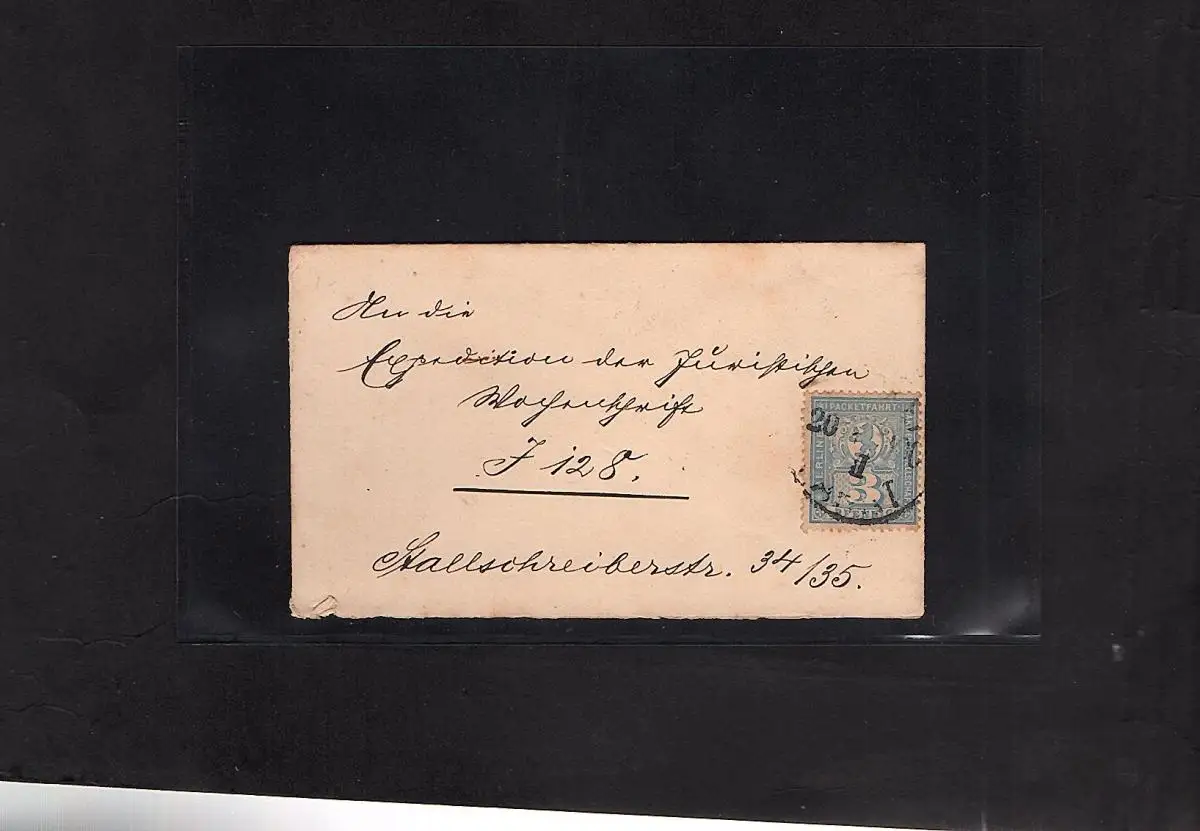 An die
Expedition der Juristischen
Wochenschrift
J 128.
Stallschreiberstr. 34/35.
PACKETFAHRT
3
20